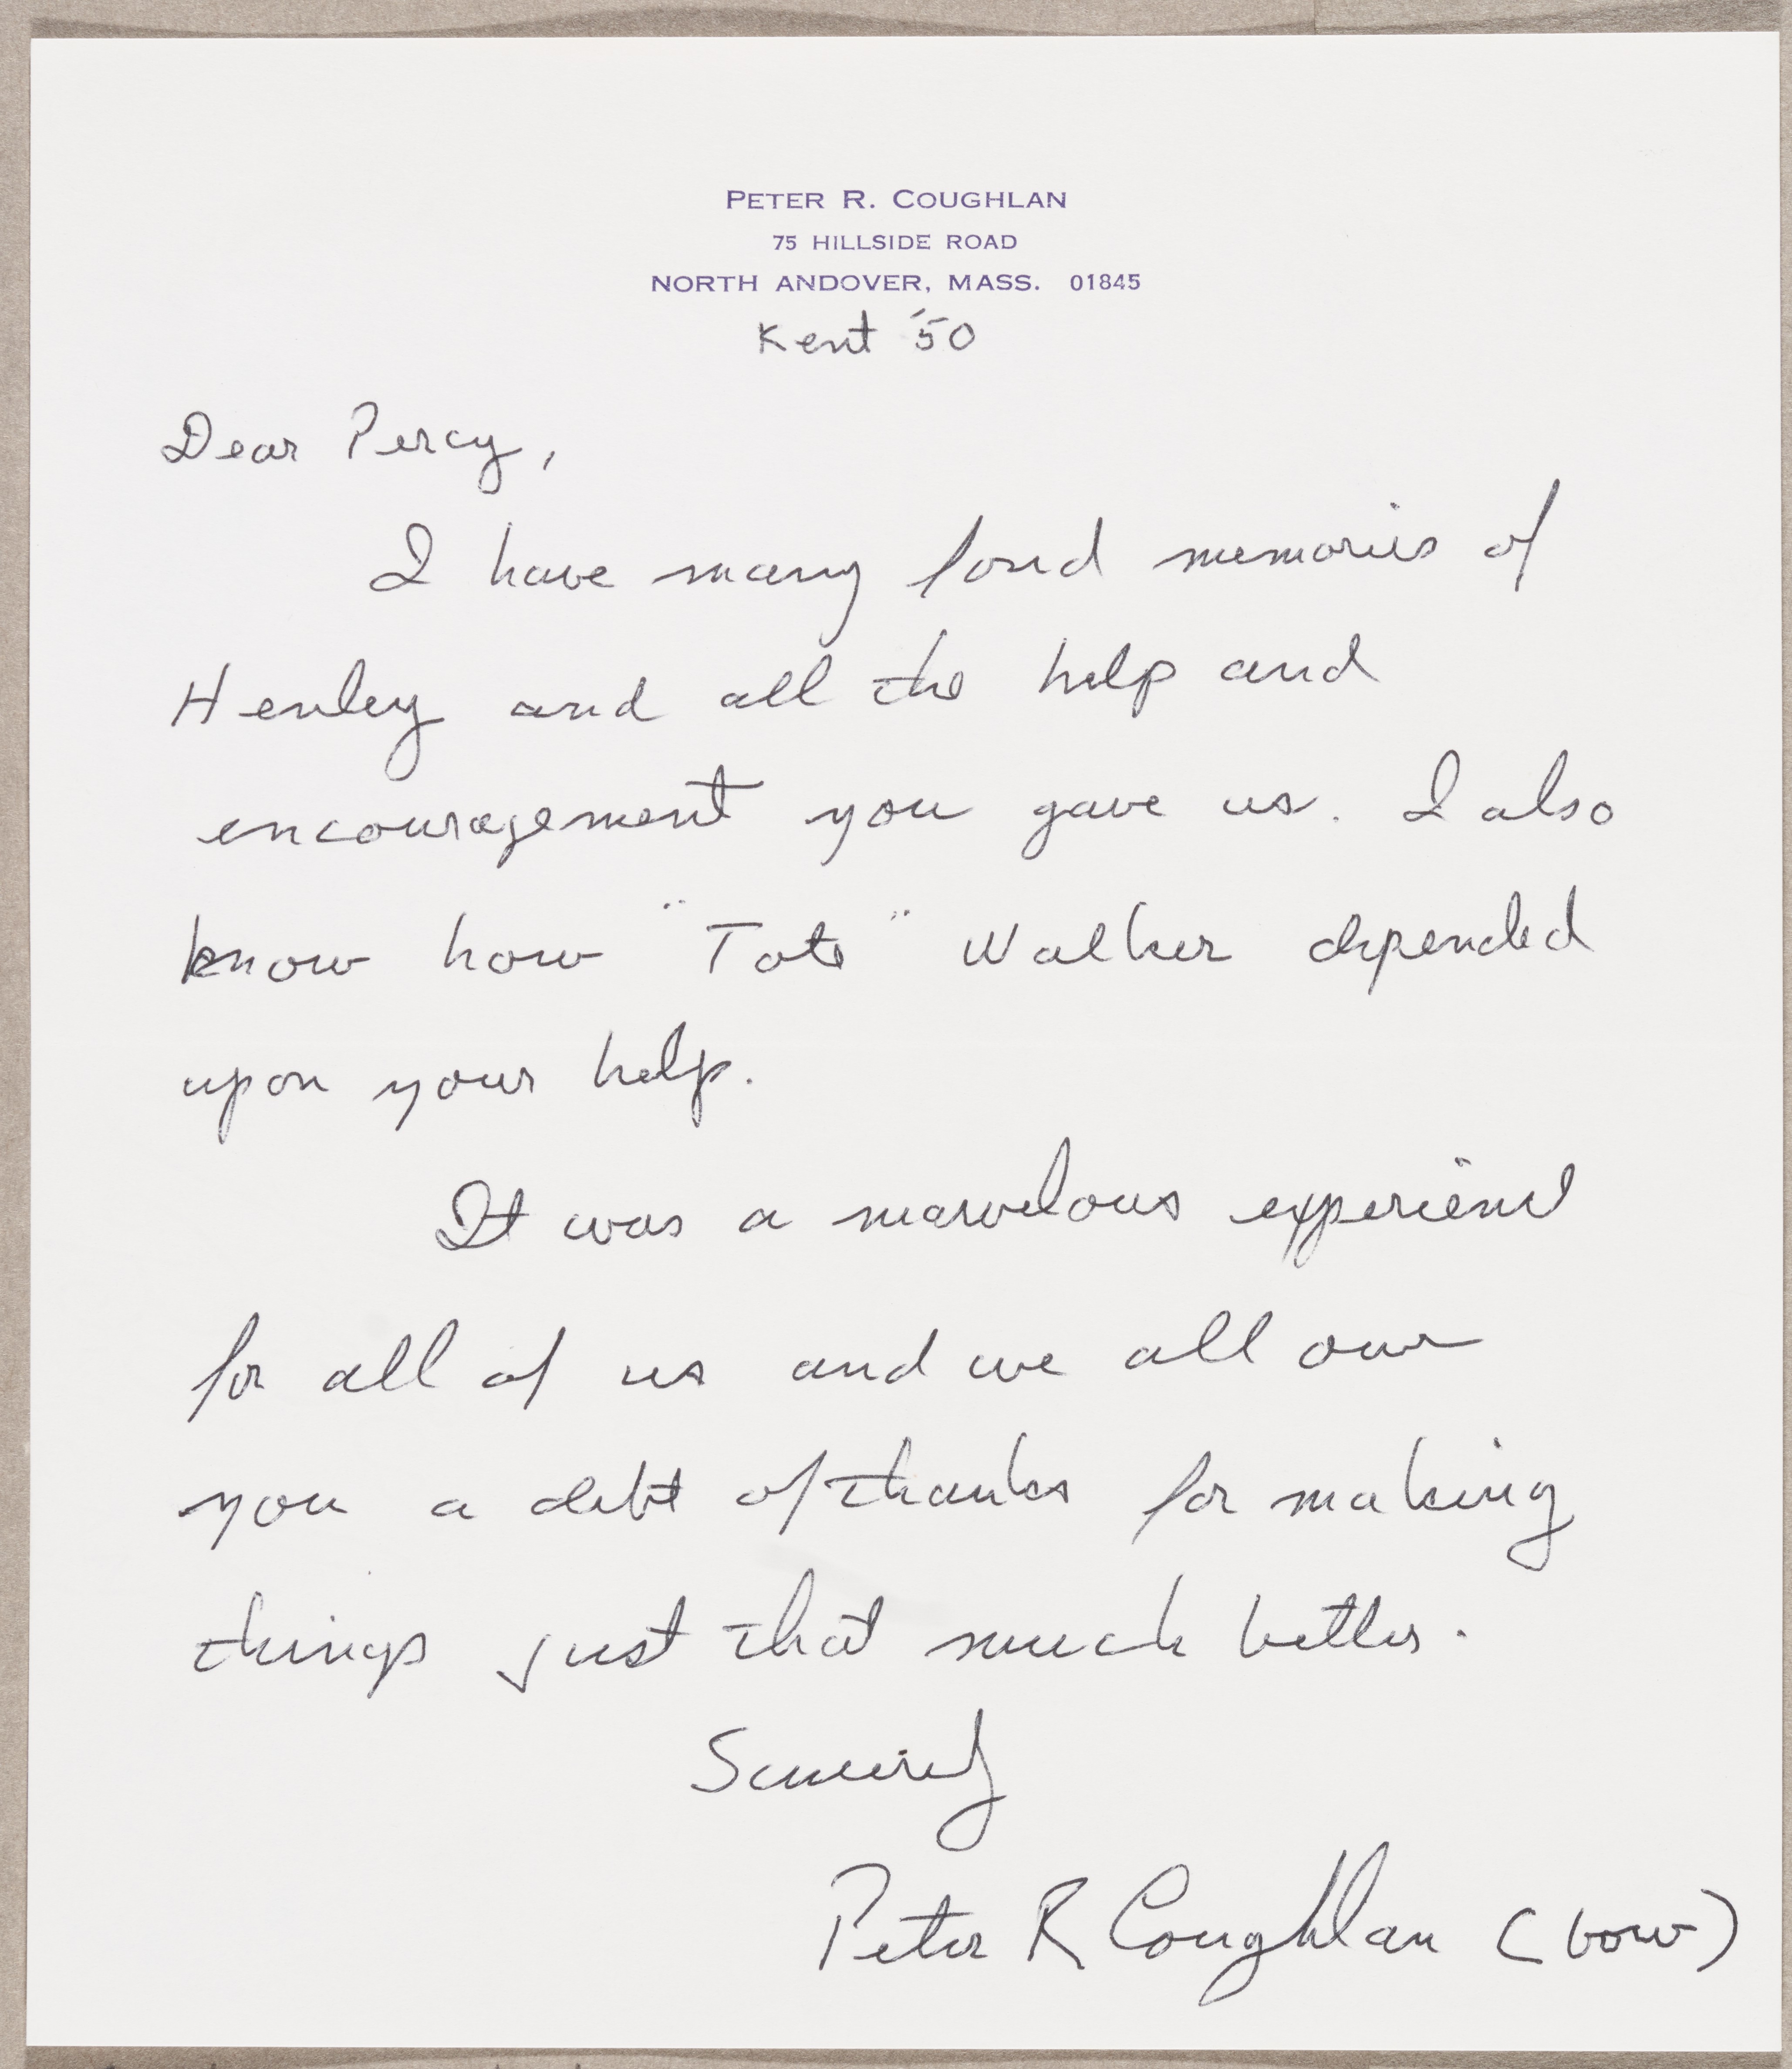 PETER R. COUGHLAN
75 HILLSIDE ROAD
NORTH ANDOVER, MASS. 01845
Kent '50
Dear Percy,
I have many fond memories of
Henley and all the help and
encouragement you gave us. I also
know how "Tote" Walker depended
upon your help.
It was a marvelous experience
for all of us and we all owe
you a debt of thanks for making
things just that much better.
Sincerely
Peter R Coughlan (bow)